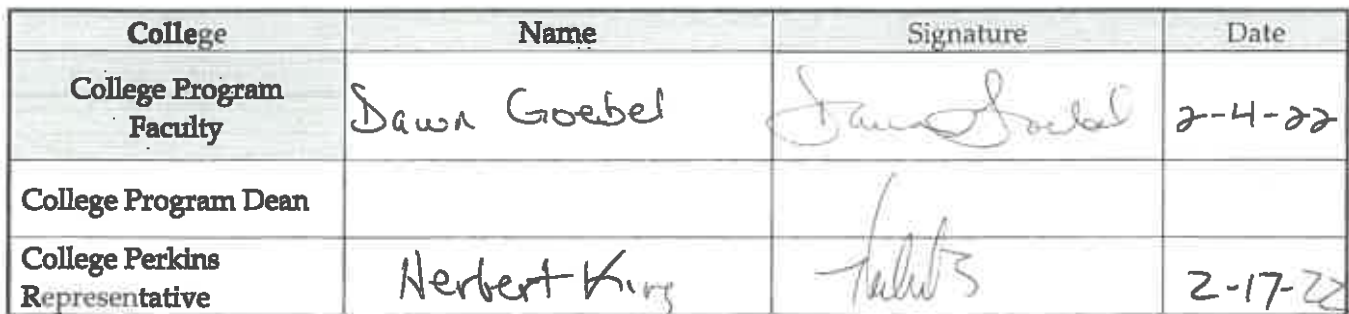 College Name Signature Date
College Program
Faculty
Dawn Goebel Dawn Goebel 2-4-22
College Program Dean
College Perkins
Representative
Herbert King 2-17-22